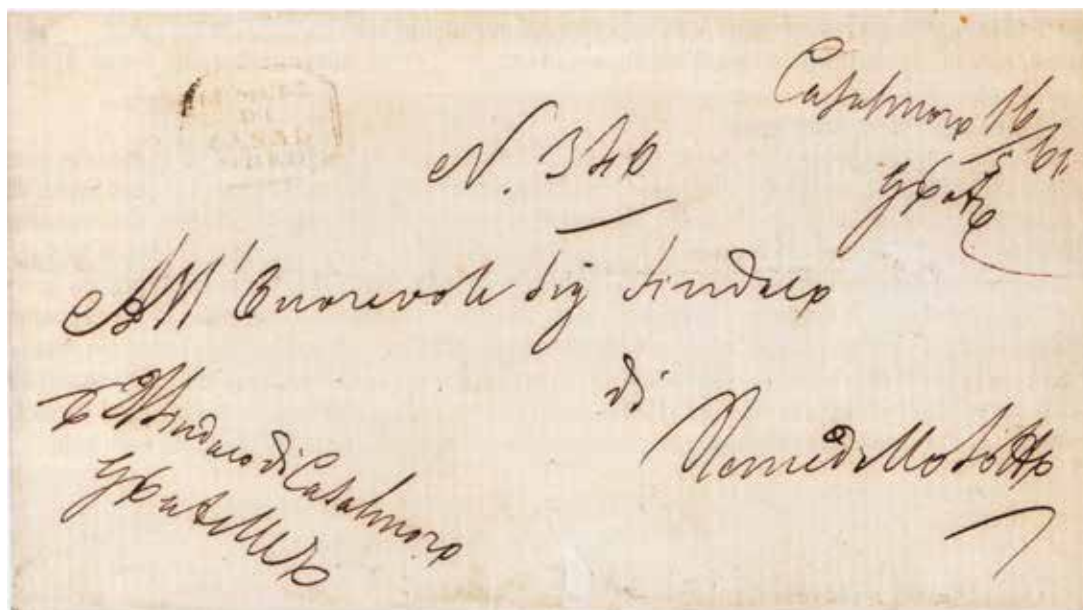 Casalmoro 16/5 61.
N. 346
All' Onorevole Sig Sindaco
di
Remedello Sotto
Il Sindaco di Casalmoro